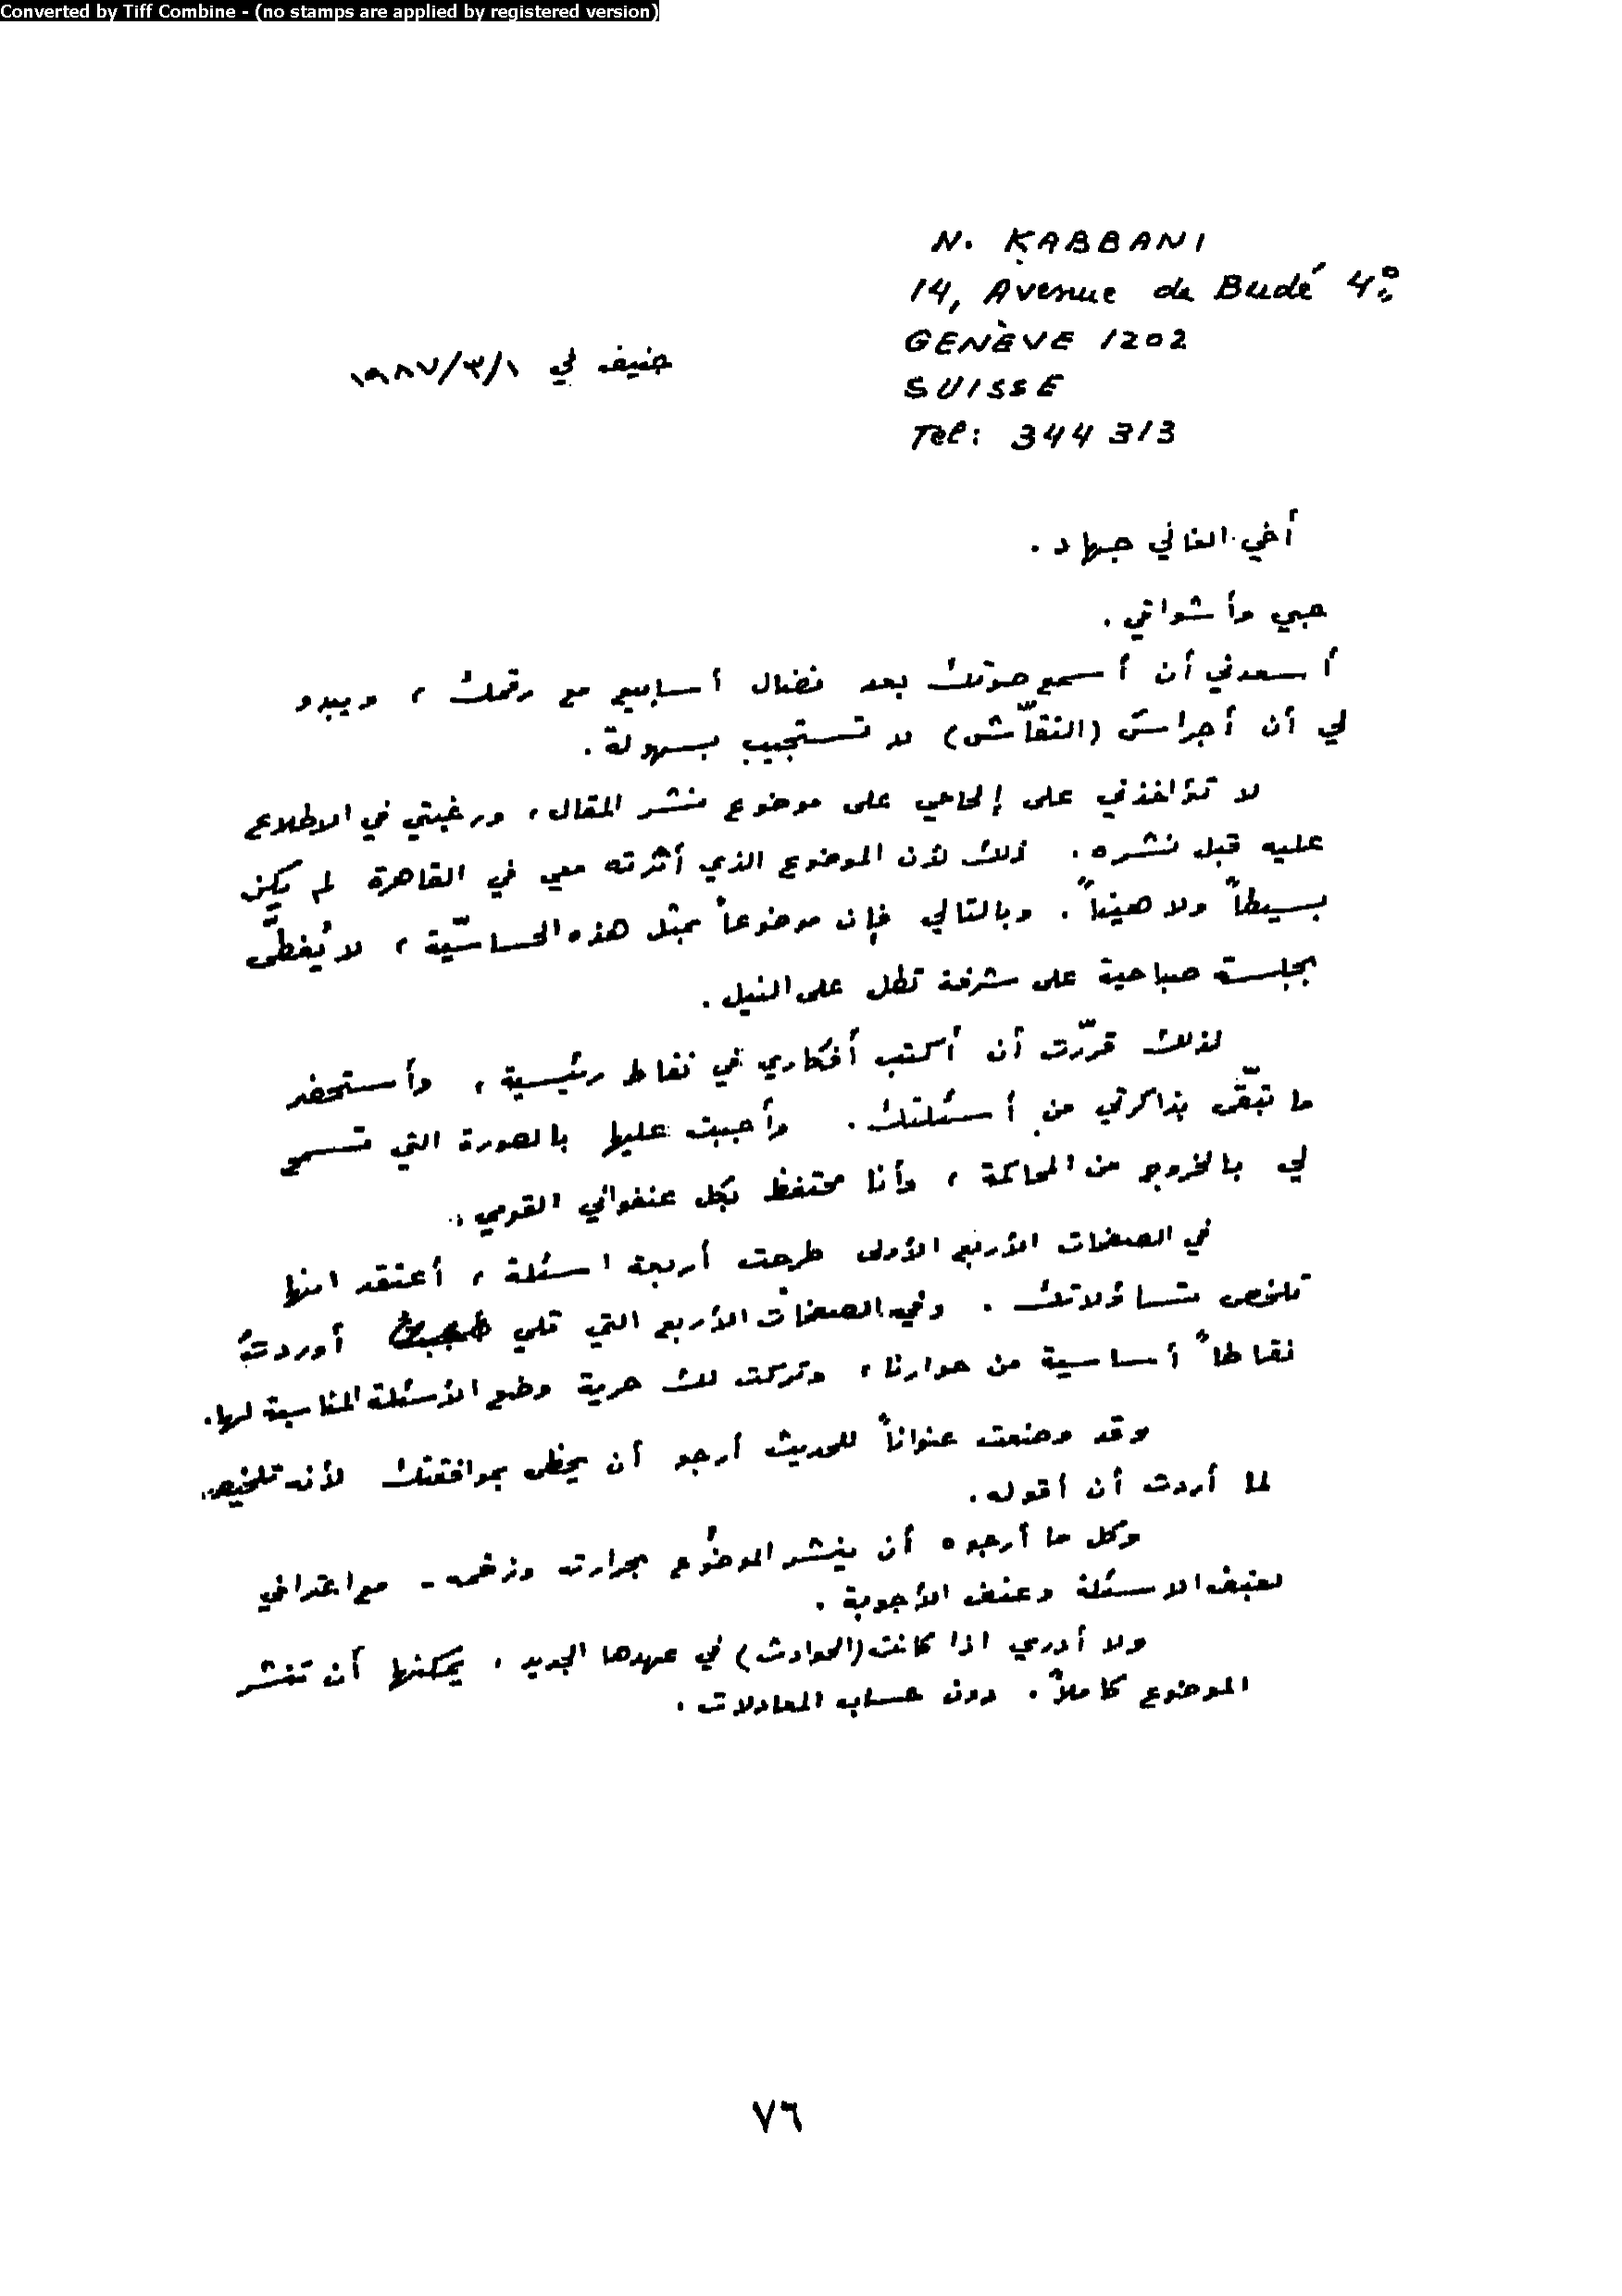 Converted by Tiff Combine - (no stamps are applied by registered version)
N. KABBANI
14, Avenue de Budé 4º
GENÈVE 1202
SUISSE
Tel: 344 313
جنيف في ١٩٨٧/٣/١
أخي الغالي جهاد.
حبي وأشواقي.
أسعدني أن أسمع صوتك بعد نضال أسابيع مع رقمك، ويبدو
لي أن أجراسَ (النقّاش) لا تستجيب بسهولة.
لا تؤاخذني على إلحاحي على موضوع نشر المقال، ورغبتي في الاطلاع
عليه قبل نشره. ذلك لأن الموضوع الذي أثرته معي في القاهرة لم يكن
بسيطاً ولا هيناً. وبالتالي فإن موضوعاً بمثل هذه الحساسيّة، لا يُغطَّى
بجلسة صباحية على شرفة تطل على النيل.
لذلك قرّرت أن أكتب أفكاري في نقاط رئيسية، وأستحضر
ما تبقّى بذاكرتي من أسئلتك. وأجبت عليها بالصورة التي تسمح
لي بالخروج من المحاكمة، وأنا محتفظ بكل عنفواني القومي.
في الصفحات الأربع الأولى طرحت أربعة اسئلة، أعتقد انها
تلخص تساؤلاتك. وفي الصفحات الأربع التي تلي أوردتُ
نقاطاً أساسية من حوارنا، وتركت لك حرية وضع الأسئلة المناسبة لها.
وقد وضعت عنواناً للحديث أرجو أن يحظى بموافقتك لأنه تلخيص
لما أردت أن أقوله.
وكل ما أرجوه أن ينشر الموضوع بحرارته وزخمه - مع اعترافي
بعنف الاسئلة وعنف الأجوبة.
ولا أدري اذا كانت (الحوادث) في عهدها الجديد، يمكنها أن تنشر
الموضوع كاملاً. دون حساب المعادلات.
٧٦